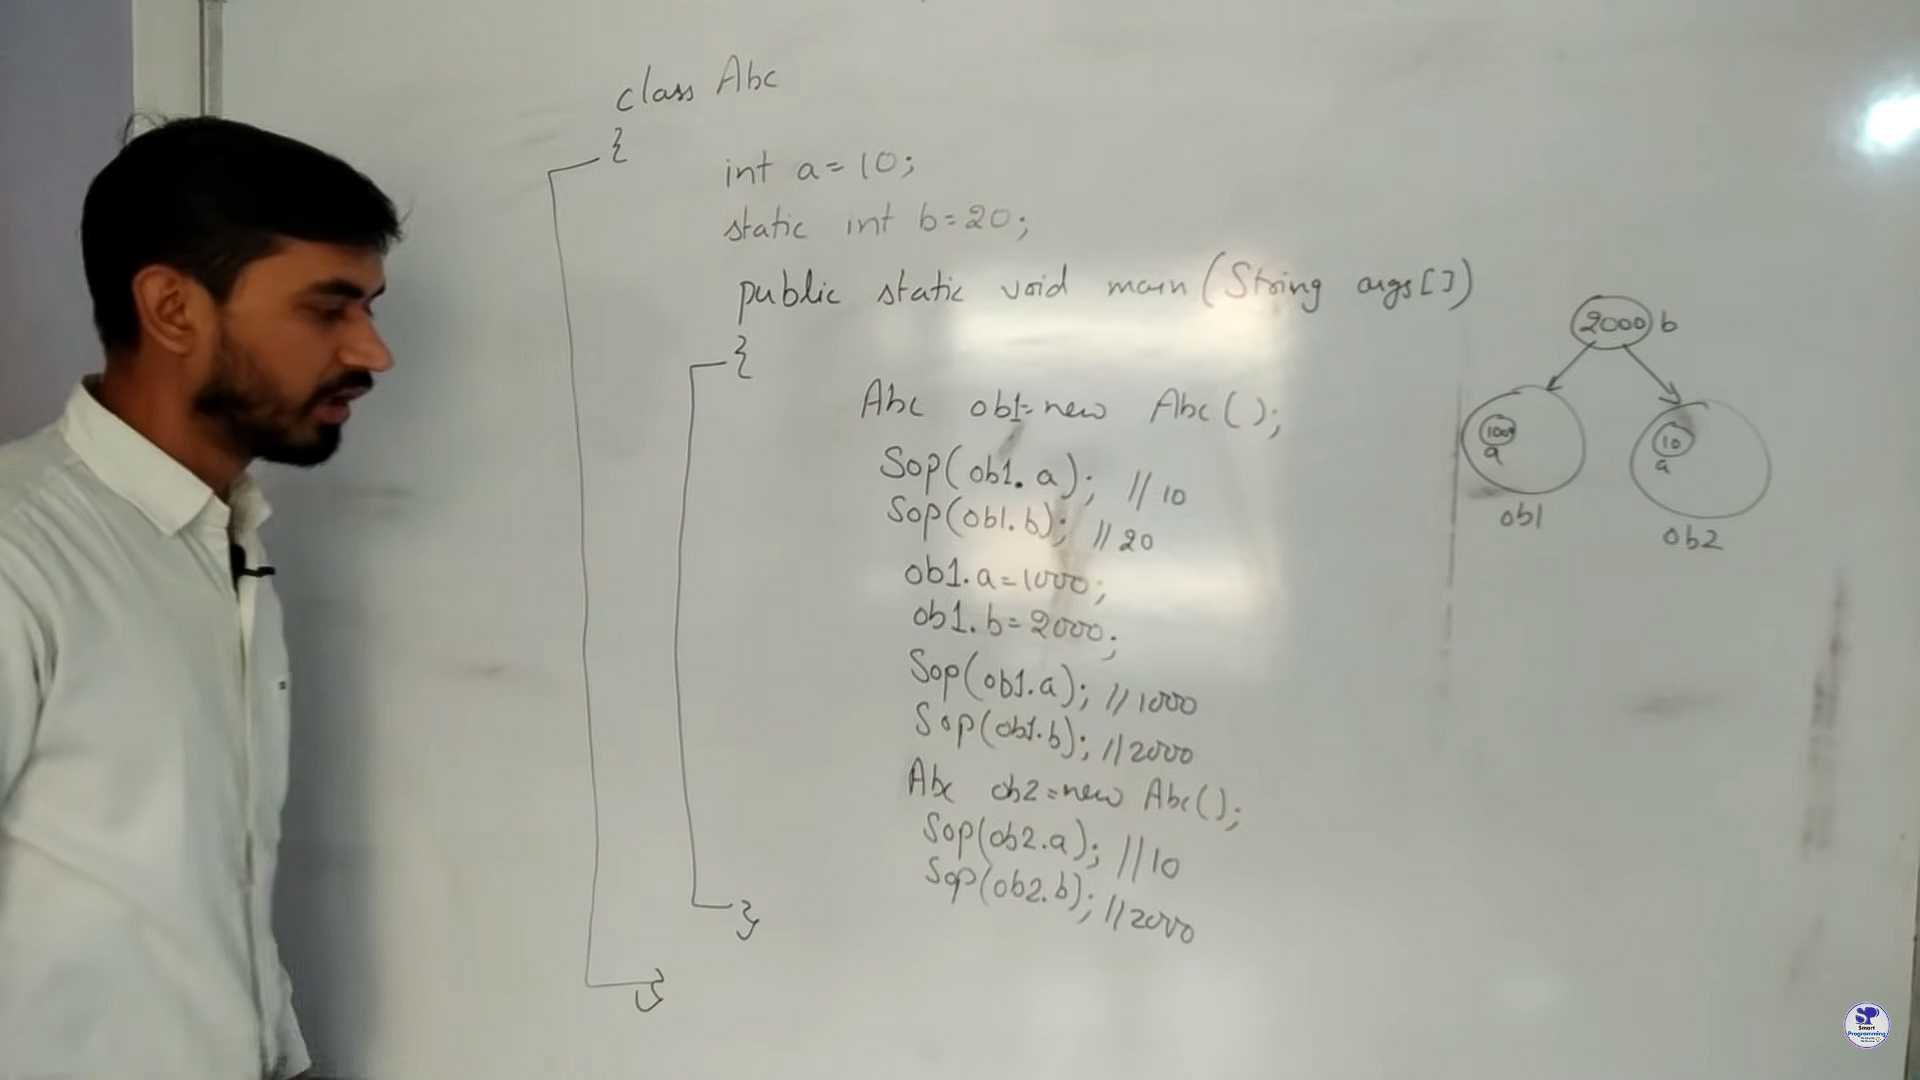 class Abc
{
int a=10;
static int b=20;
public static void main(String args[])
{
Abc ob1=new Abc();
Sop(ob1.a); //10
Sop(ob1.b); //20
ob1.a=1000;
ob1.b=2000;
Sop(ob1.a); //1000
Sop(ob1.b); //2000
Abc ob2=new Abc();
Sop(ob2.a); //10
Sop(ob2.b); //2000
}
}
2000 b
1000
a
ob1
10
a
ob2
SP
Smart
Programming